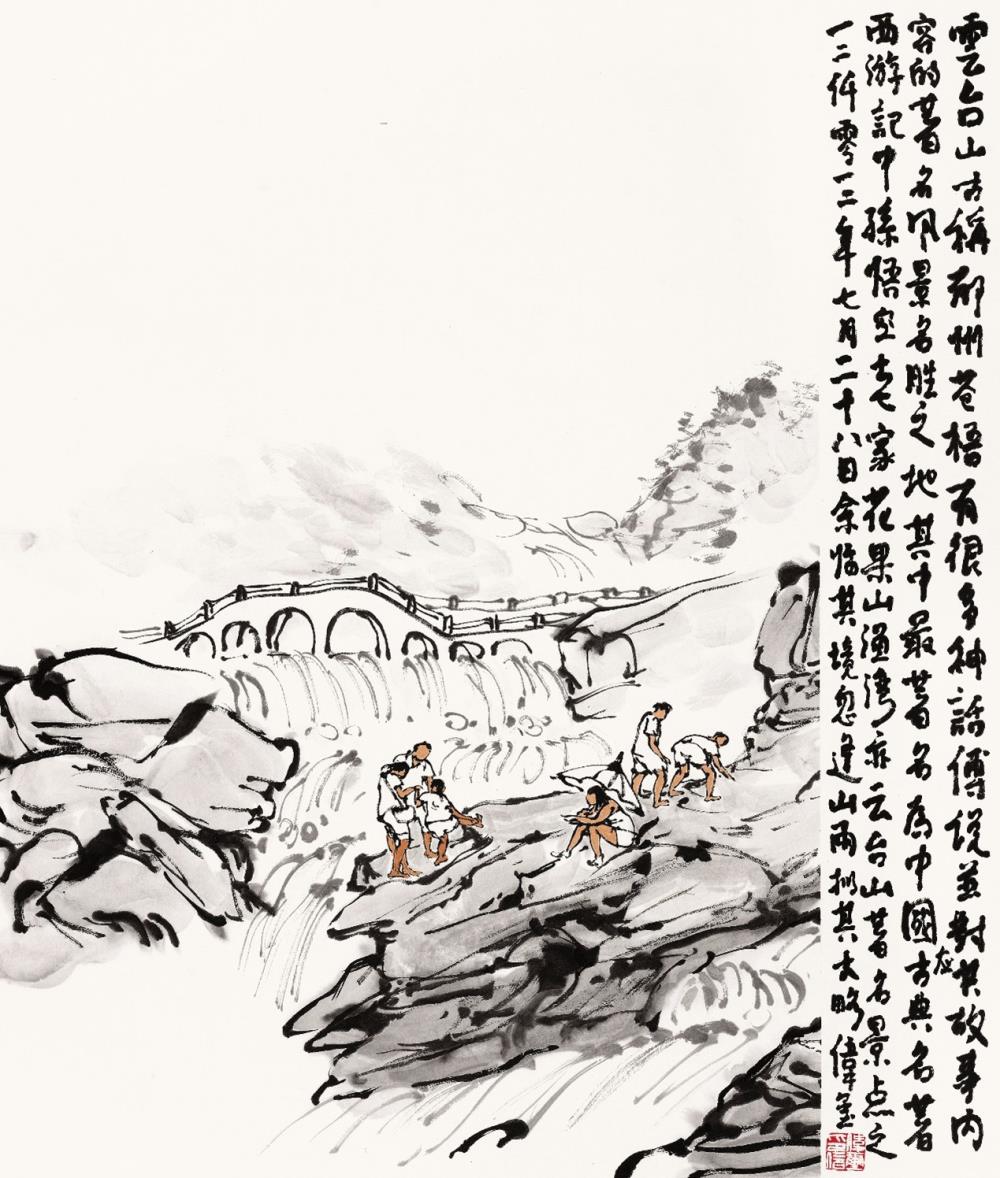 雲台山古稱郁州苍梧有很多神話傳说並對其故事内
容的著名风景名胜之地其中最著名為中國古典名著
应
西游記中孫悟空老家花果山漁湾亦云台山著名景点之
一二仟零一二年七月二十八日余临其境忽逢山雨拟其大略偉